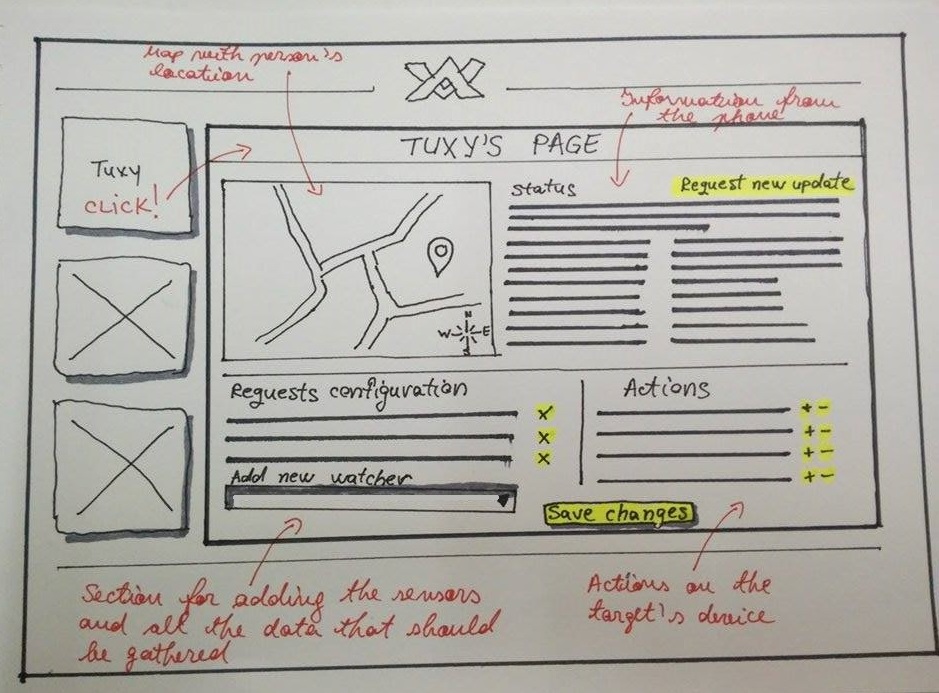 Map with person's
location
Information from
the phone
TUXY'S PAGE
Tuxy
CLICK!
Status
Request new update
N
W E
S
Requests configuration
x
x
x
Add new watcher
Actions
+ -
+ -
+ -
+ -
Save changes
Section for adding the sensors
and all the data that should
be gathered
Actions on the
target's device